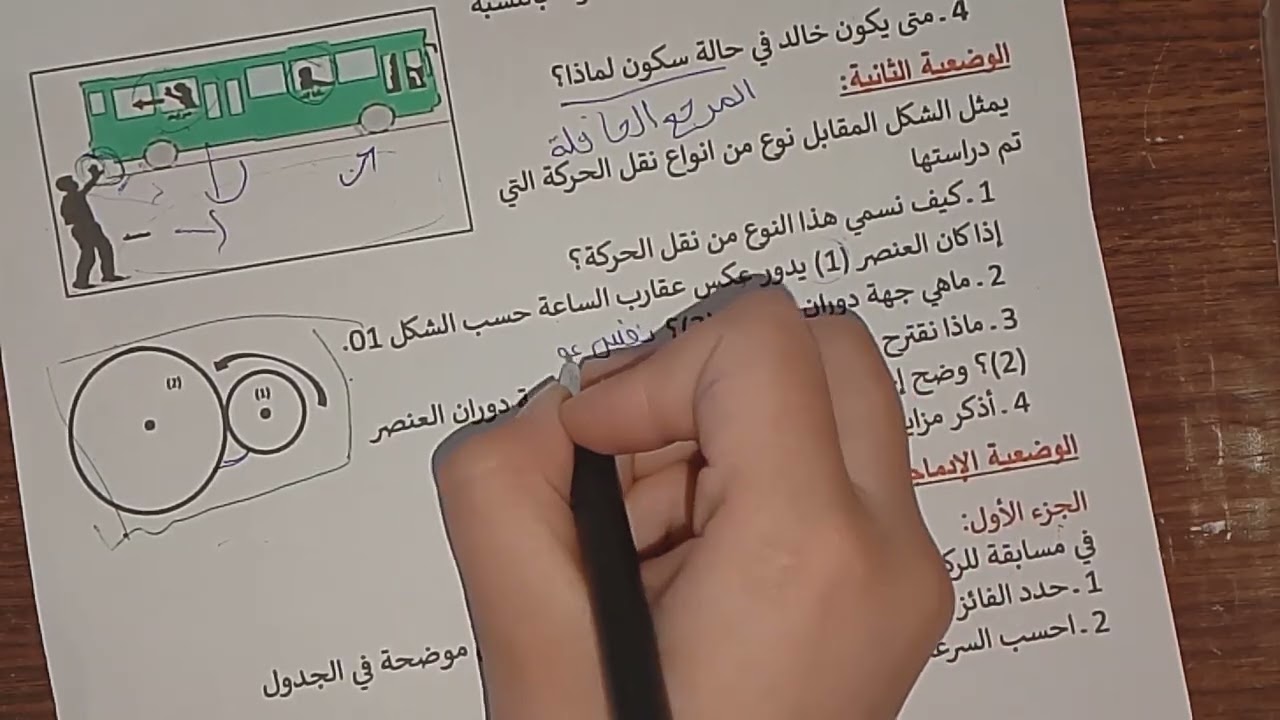 بالنسبة
4 ـ متى يكون خالد في حالة سكون لماذا؟
المرجع الحافلة
الوضعية الثانية:
يمثل الشكل المقابل نوع من انواع نقل الحركة التي
تم دراستها
1 ـ كيف نسمي هذا النوع من نقل الحركة؟
إذا كان العنصر (1) يدور عكس عقارب الساعة حسب الشكل 01.
2 ـ ماهي جهة دوران
نفس عق
3 ـ ماذا نقترح
دوران العنصر
(2)؟ وضح
4 ـ أذكر
الوضعية
الجزء الأول:
في مسابقة
1 ـ حدد الفائز
2 ـ احسب
موضحة في الجدول
(2)
(1)